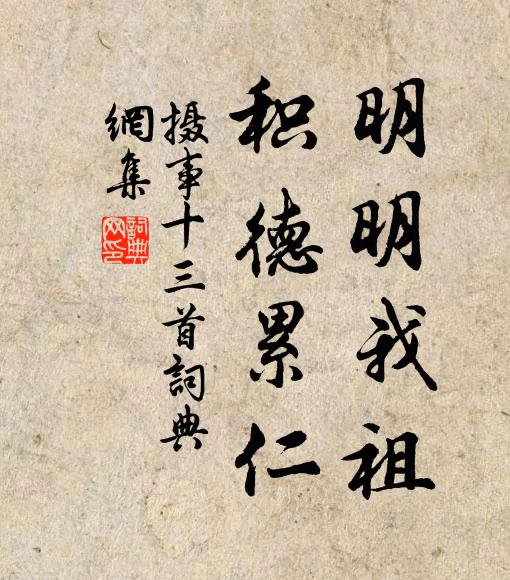 明明我祖
积德累仁
摄事十三首詞典
網集
詞典
网印